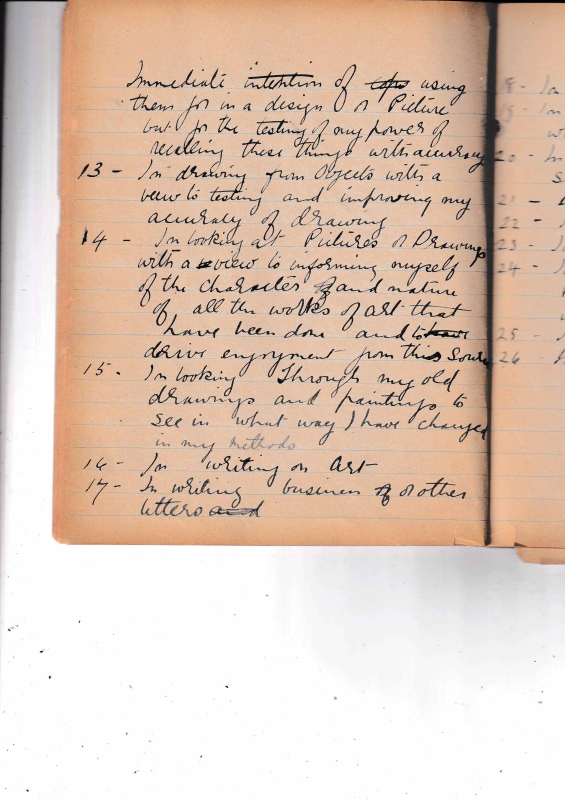 Immediate intention of using
them for in a design or Picture
but for the testing of my power of
recalling these things with accuracy
13 - In drawing from Objects with a
view to testing and improving my
accuracy of drawing
14 - In looking at Pictures or Drawings
with a view to informing myself
of the character and nature
of all the works of art that
have been done and to have
drive enjoyment from this Source
15 - In looking Through my old
drawings and paintings to
see in what way I have changed
in my methods
16 - In writing on Art
17 - In writing business of or other
letters and
18 - In
19 - In
20 - In
21 -
22 -
23 - I
24 -
25
26